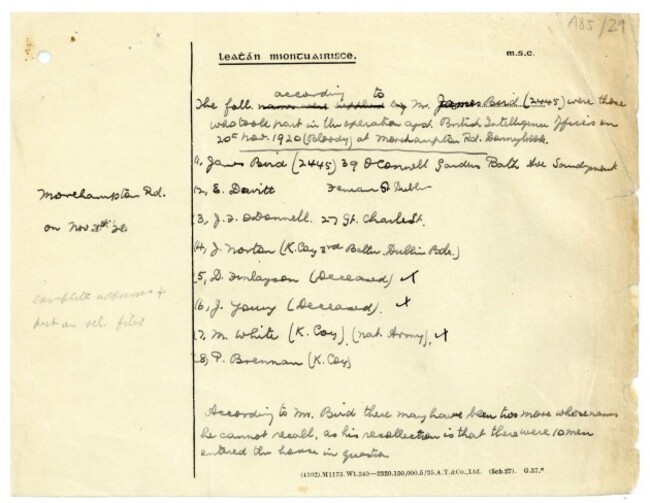 A85/29
Leatán Miontuairisce. M.S.C.
according to
The foll. names were supplied by Mr. James Bird (2445) were those
who took part in the operation agst. British Intelligence Officers on
20th Nov. 1920 (Bloody) at Morehampton Rd. Donnybrook.
(1, James Bird (2445) 39 O'Connell Gardens Bath Ave Sandymount
(2, E. Davitt Fenian St Dublin
(3, J. J. O'Donnell. 27 Gt. Charles St.
(4, J. Norton (K. Coy 3rd Battn Dublin Bde.)
(5, D. Finlayson (Deceased) x
(6, J. Young (Deceased). x
(7, M. White (K. Coy). (Nat. Army). x
(8, P. Brennan (K. Coy)
Morehampton Rd.
on Nov
complete addresses &
put on rel. files
According to Mr. Bird there may have been two more whose names
he cannot recall, as his recollection is that there were 10 men
entered the house in question
(4102).M1173.Wt.340—2320.150,000.5/35.A.T.&Co.,Ltd. (Sch.27). G.37.*